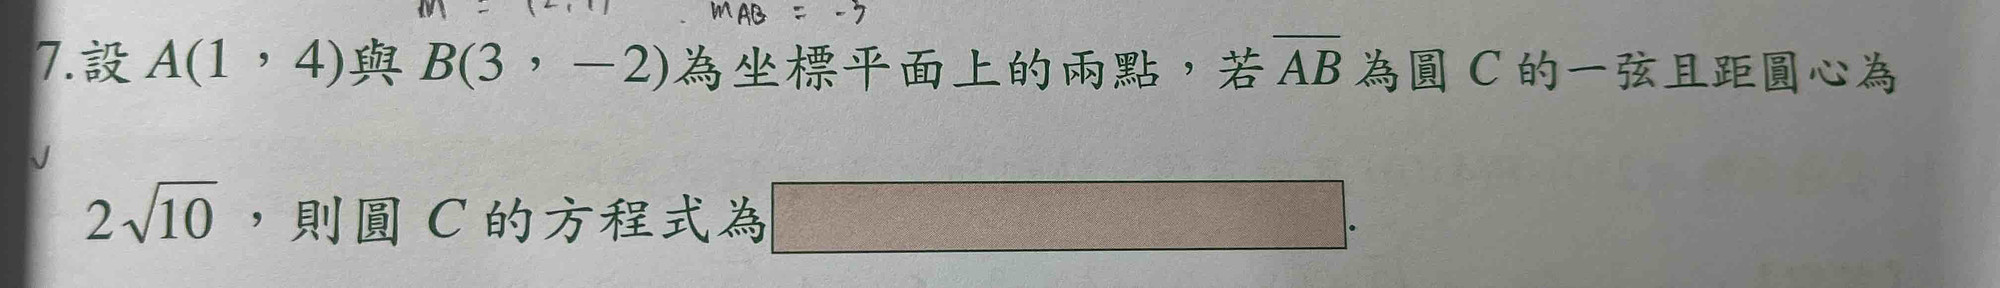 M = (2, 1) m_AB = -3
7.設 A(1，4)與 B(3，－2)為坐標平面上的兩點，若 \overline{AB} 為圓 C 的一弦且距圓心為
2√10，則圓 C 的方程式為 .